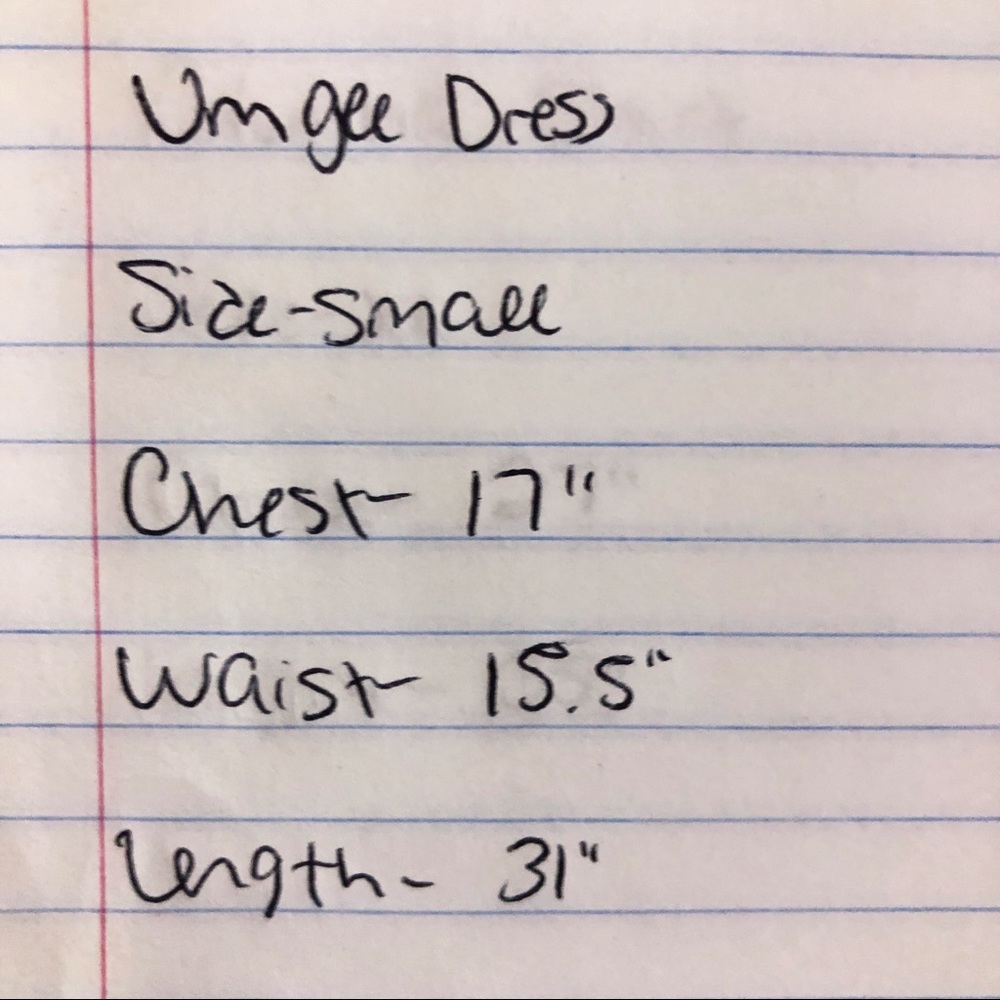 Umgee Dress
Size-small
Chest- 17"
Waist- 15.5"
Length- 31"